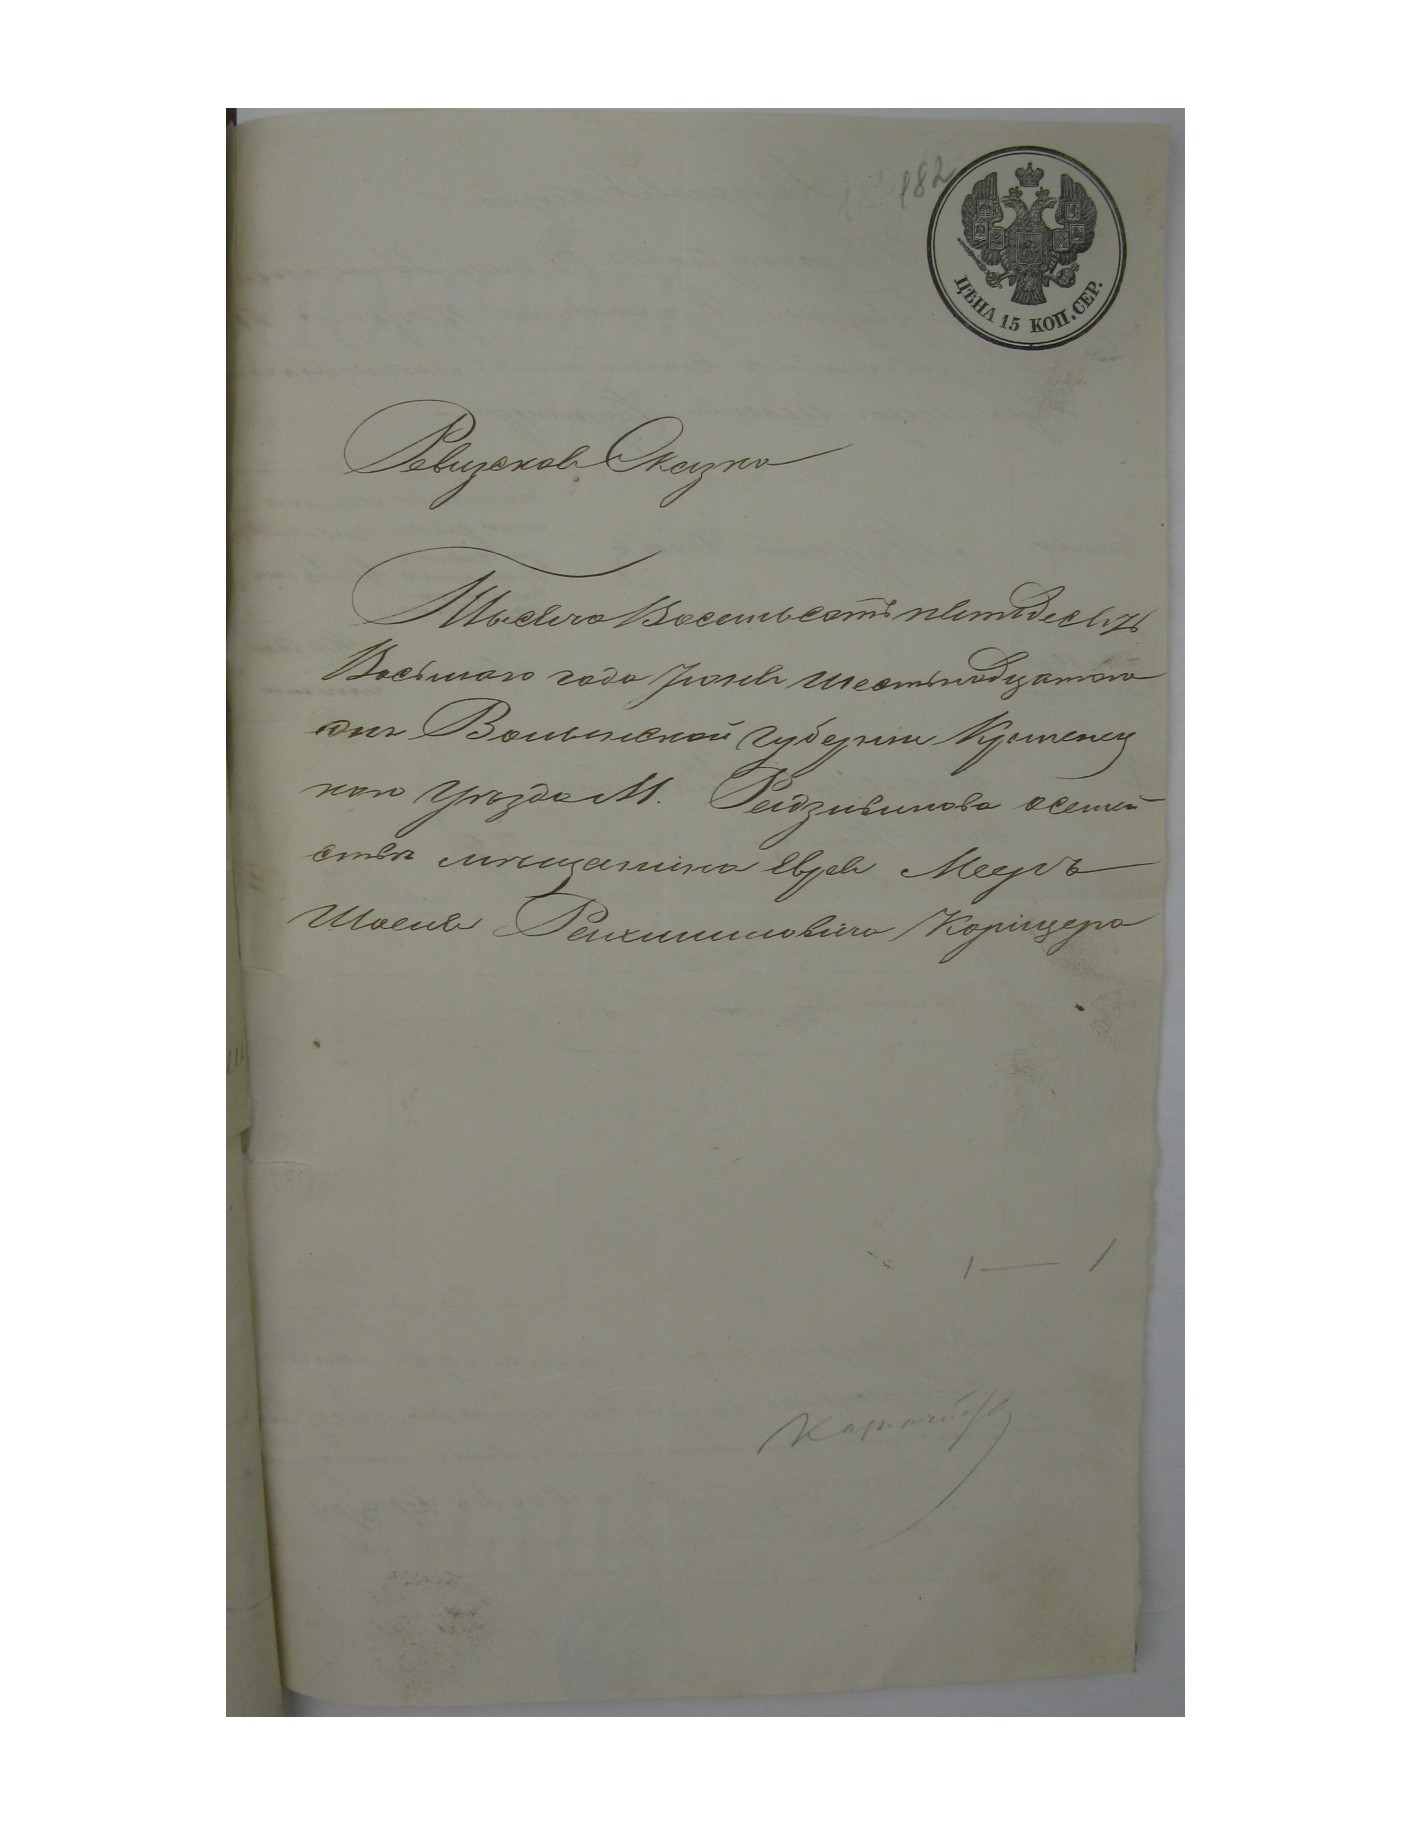 182
ЦѢНА 15 КОП. СЕР.
Ревизская Сказка
Тысяча Восемьсотъ пятьдесятъ
Восьмаго года Июня шестьнадцатого
дня Волынской Губернии Кременец
каго Уезда М. Радзивилова о семей
ствѣ мѣщанина Еврея
Рахмиловича Корицера
1 — 1